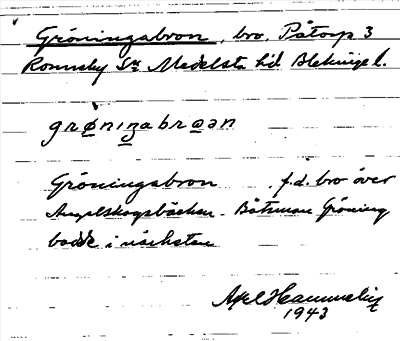 Gröningabron, bro, Påtorp 3
Ronneby Sn Medelsta hd Blekinge l.
grønıŋabroən
Gröningabron f.d. bro över
Angelskogsbäcken. Båtsman Gröning
bodde i närheten
Axel
1943